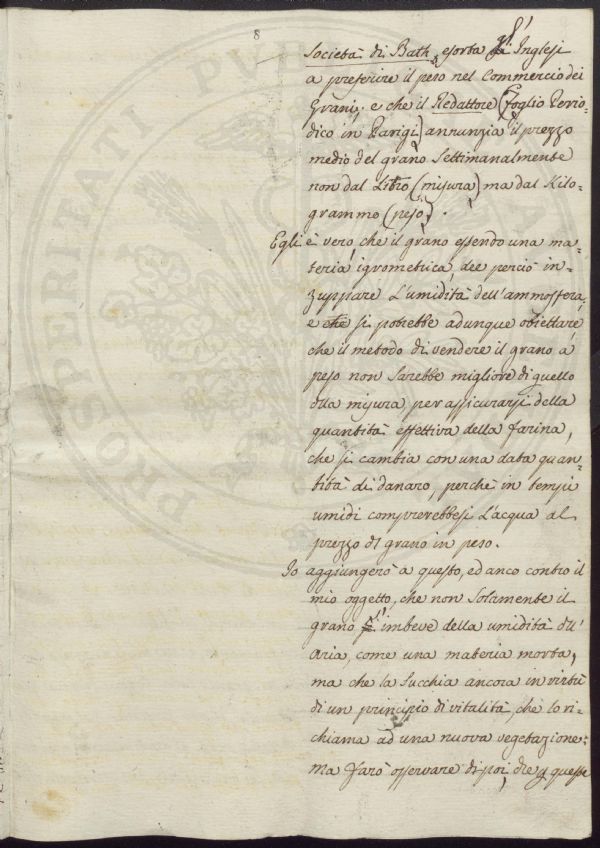 8
Società di Bath, esorta gl' Inglesi
a preferire il peso nel Commercio dei
Grani; e che il Redattore (foglio Perio-
dico in Parigi) annunzia il prezzo
medio del grano Settimanalmente
non dal Litro (misura) ma dal Kilo-
grammo (peso).
Egli è vero, che il grano essendo una ma-
teria igrometrica, dee perciò in-
zuppare L'umidità dell'ammosfera;
e che si potrebbe adunque obiettare
che il metodo di vendere il grano a
peso non Sarebbe migliore di quello
d̃lla misura, per assicurarsi della
quantità effettiva della farina,
che si cambia con una data quan-
tità di danaro, perchè in tempi
umidi comprerebbesi L'acqua al
prezzo di grano in peso.
Io aggiungerò a questo, ed anco contro il
mio oggetto, che non Solamente il
grano s' imbeve della umidità d̃ll'
Aria, come una materia morta,
ma che la Succhia ancora in virtù
di un principio di vitalità, che lo ri-
chiama ad una nuova vegetazione:
Ma farò osservare di poi, che queste
PROSPERITATI PUBL